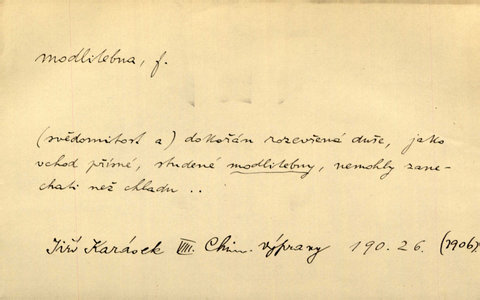 modlitebna, f.
(svědomitost a) dokořán rozevřená duše, jako
vchod přísné, studené modlitebny, nemohly zane-
chati než chladu ..
Jiří Karásek VIII. Chim. výpravy 190.26. (1906).